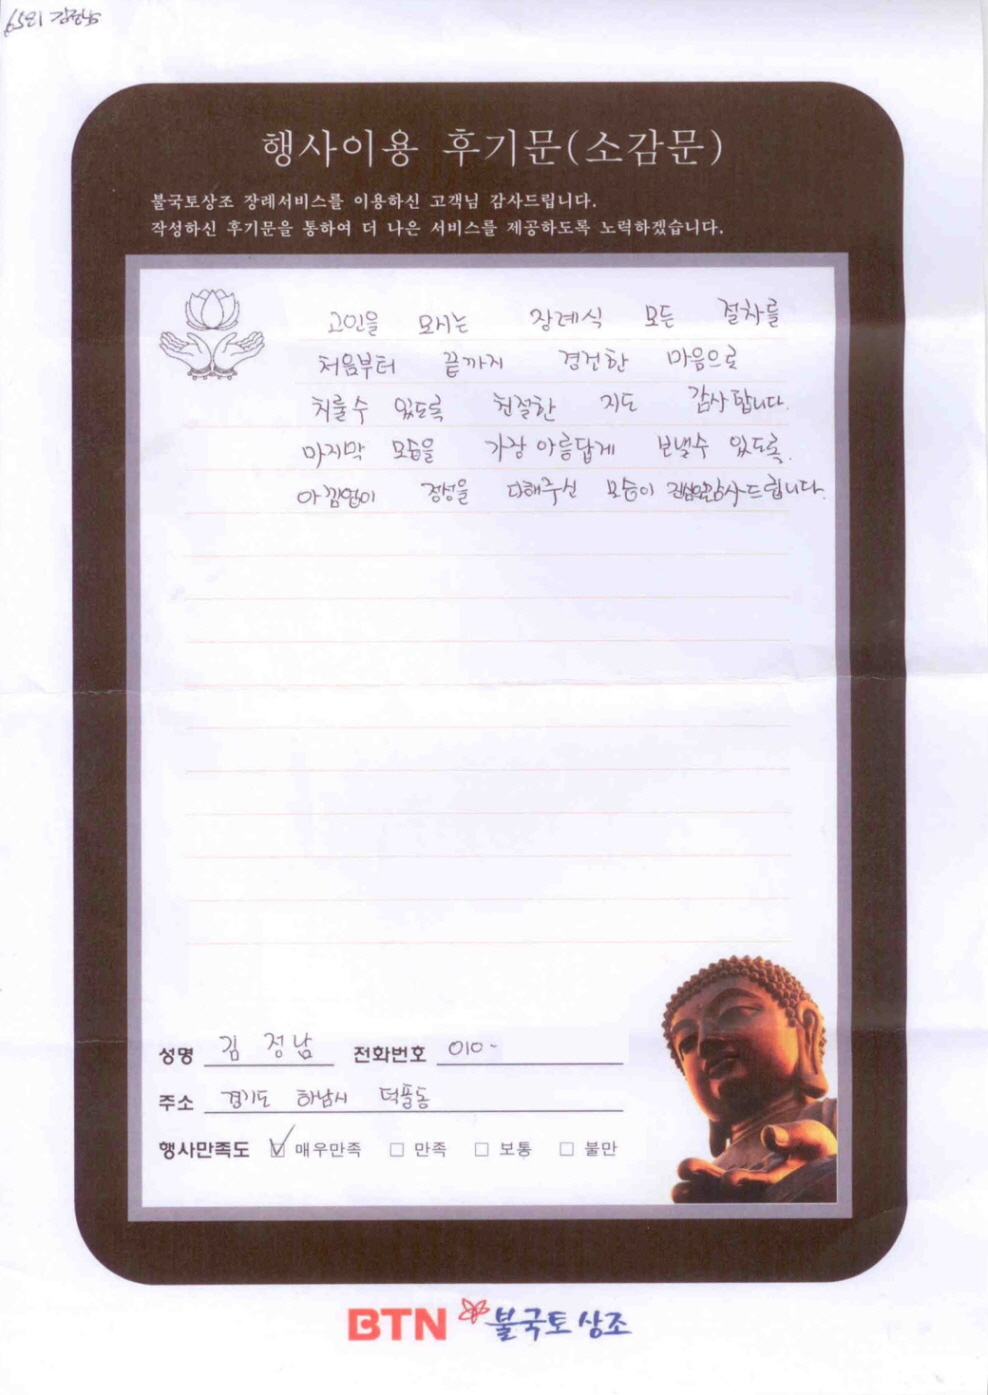 김정남
행사이용 후기문(소감문)
불국토상조 장례서비스를 이용하신 고객님 감사드립니다.
작성하신 후기문을 통하여 더 나은 서비스를 제공하도록 노력하겠습니다.
고인을 모시는 장례식 모든 절차를
처음부터 끝까지 경건한 마음으로
치룰수 있도록 친절한 지도 감사합니다.
마지막 모습을 가장 아름답게 보낼수 있도록.
아낌없이 정성을 다해주신 모습이 감사드립니다.
성명 김 정남 전화번호 010-
주소 경기도 하남시 덕풍동
행사만족도 ☑ 매우만족 □ 만족 □ 보통 □ 불만
BTN 불국토 상조